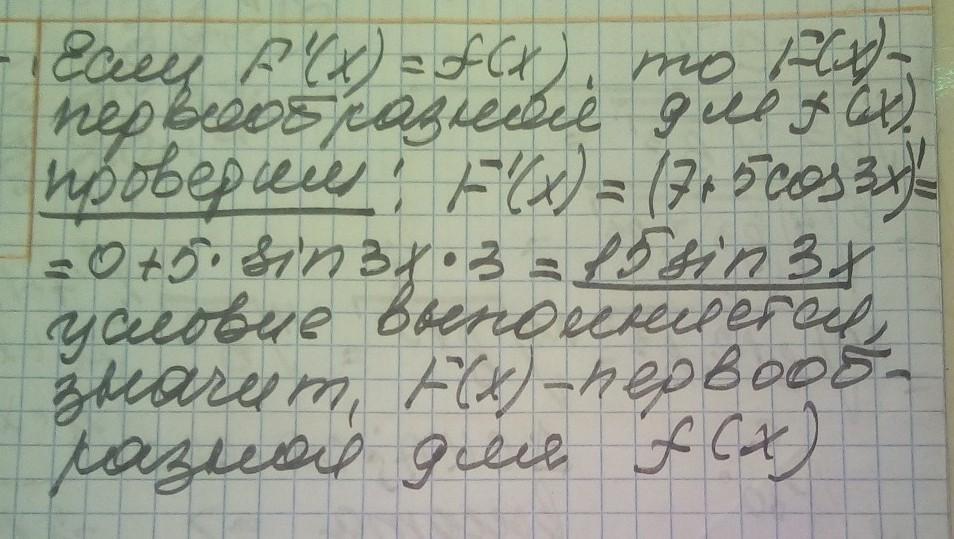 Если F'(x) = f(x), то F(x) -
первообразная для f(x).
проверим: F'(x) = (7+5cos3x)'=
= 0+5·sin3x·3 = 15sin3x
условие выполняется,
значит, F(x) - первооб-
разная для f(x)